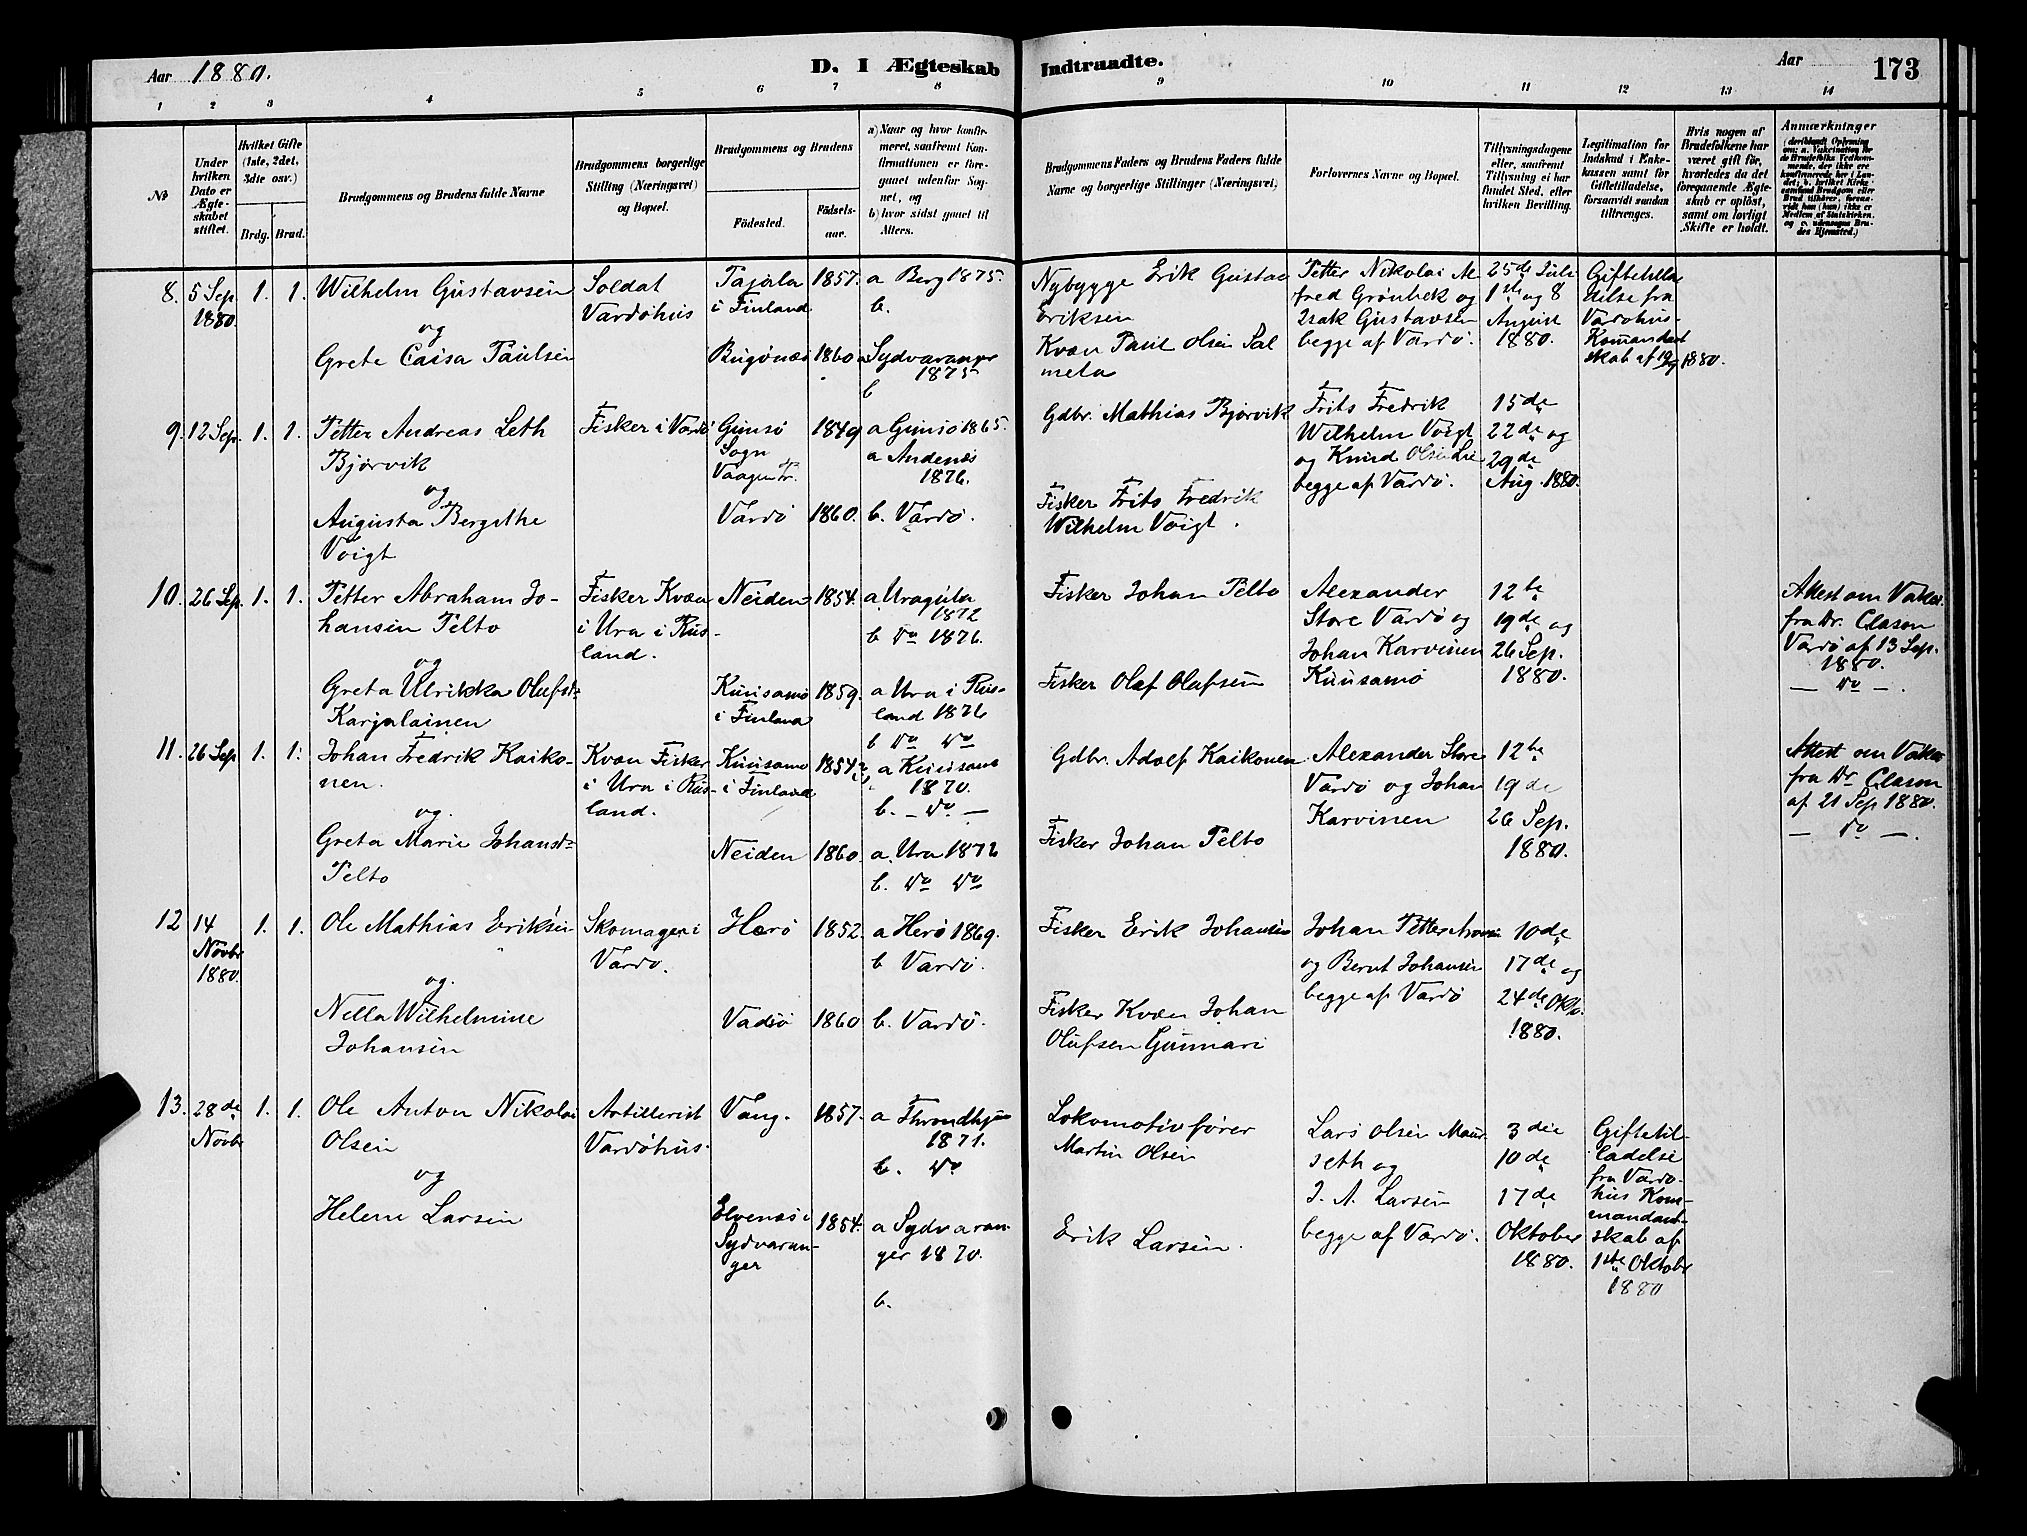 Aar 1880.
D. I Ægteskab Indtraadte.
Aar
173
1 2 3 4 5 6 7 8 9 10 11 12 13 14
No
Under hvilken Dato er Ægteskabet stiftet.
Hvilket Gifte (1ste, 2det, 3die osv.)
Brdg. Brud.
Brudgommens og Brudens fulde Navne
Brudgommens borgerlige Stilling (Næringsvei) og Bopæl.
Brudgommens og Brudens
Födested.
Födselsaar.
a) Naar og hvor konfirmeret, saafremt Konfirmationen er foregaaet udenfor Sognet, og
b) hvor sidst gaaet til Alters.
Brudgommens Faders og Brudens Faders fulde Navne og borgerlige Stillinger (Næringsvei)
Forlovernes Navne og Bopæl.
Tillysningsdagene eller, saafremt Tillysning ei har fundet Sted, efter hvilken Bevilling.
Legitimation for Indskud i Enkekassen samt for Giftetilladelse, forsaavidt saadan tiltrænges.
Hvis nogen af Brudefolkene har været gift för, hvorledes da det foregaaende Ægteskab er oplöst, samt om lovligt Skifte er holdt.
Anmærkninger
8. 5 Sep. 1880. 1. 1.
Wilhelm Gustavsen
og
Grete Caisa Paulsen
Soldat
Vardöhus
Tajala
i Finland
1857.
a Berg 1875.
b.
Bugönæs
1860
a Sydvaranger
1875
b
Nybygge Erik Gustav
Eriksen
Kvæn Paul Olsen Sal
mela
Petter Nikolai Al
fred Grönbek og
Isak Gustavsen
begge af Vardö.
25de Juli
1ste og 8
August
1880.
Vardöhus-
Komandant
skab af
1880.
9. 12 Sep. 1. 1.
Petter Andreas Leth
Bjørvik
og
Augusta Bergithe
Voigt
Fisker i Vardö
Gimsö
Sogn
Vaagen Pr.
1849
a Gimsö 1865.
a Andenæs
1876.
Vardö
1860.
b. Vardö.
Gdbr. Mathias Bjørvik
Fisker Frits Fredrik
Wilhelm Voigt.
Frits Fredrik
Wilhelm Voigt
og Knud Olsen Lie
begge af Vardö.
15de
22de og
29de
Aug. 1880.
10. 26 Sep. 1. 1.
Petter Abraham Jo-
hansen Pelto
og
Greta Ulrikka Olufsd:
Karjalainen
Fisker Kvæn
i Ura i Rus-
land.
Neiden
1854.
a Uragula
1872
b do 1876.
Kuusamo
i Finland
1859.
a Ura i Rus-
land 1876
b do do
Fisker Johan Pelto
Fisker Olaf Olufsen
Alexander
Store Vardö og
Johan Karvinen
Kuusamö
12te
19de og
26 Sep.
1880.
Attest om Vakci.
fra Dr. Clason
Vardö af 13 Sep.
1880.
— do —.
11. 26 Sep 1. 1.
Johan Fredrik Kaiko-
nen.
og.
Greta Marie Johansd:
Pelto
Kvæn Fisker
i Ura i Rus-
land.
Kuusamo
i Finland
1854
a Kuusamo
1870.
b. — do —
Neiden
1860.
a. Ura 1876
b. do do
Gdbr. Adolf Kaikonen
Fisker Johan Pelto
Alexander Store
Vardö og Johan
Karvinen
12te
19de
26 Sep.
1880.
Attest om Vakci
fra Dr Clason
af 21 Sep 1880.
— do —.
12 14 Novbr 1880. 1. 1.
Ole Mathias Eriksen
og.
Nella Wilhelmine
Johansen
Skomager i
Vardö.
Herö
1852.
a Herö 1869.
b Vardö.
Vadsö
1860
b. Vardö.
Fisker Erik Johansen
Fisker Kvæn Johan
Olufsen Gunnari
Johan Petter
og Bernt Johansen
begge af Vardö
10de
17de og
24de Okto.
1880.
13. 28de Novbr 1. 1.
Ole Anton Nikolai
Olsen
og
Helene Larsen
Artillerist
Vardöhus.
Vang.
1857.
a Throndhjem
1871.
b. do
Elvenæs i
Sydvaran-
ger
1854.
a Sydvaran-
ger 1870.
b.
Lokomotivfører
Martin Olsen
Erik Larsen.
Lars Olsen Maur
seth og
J. A. Larsen
begge af Vardö.
3die
10de
17de
Oktober
1880.
Giftetil-
ladelse
fra Vardö-
hus Kom-
mandant-
skab af
1ste Oktobr
1880